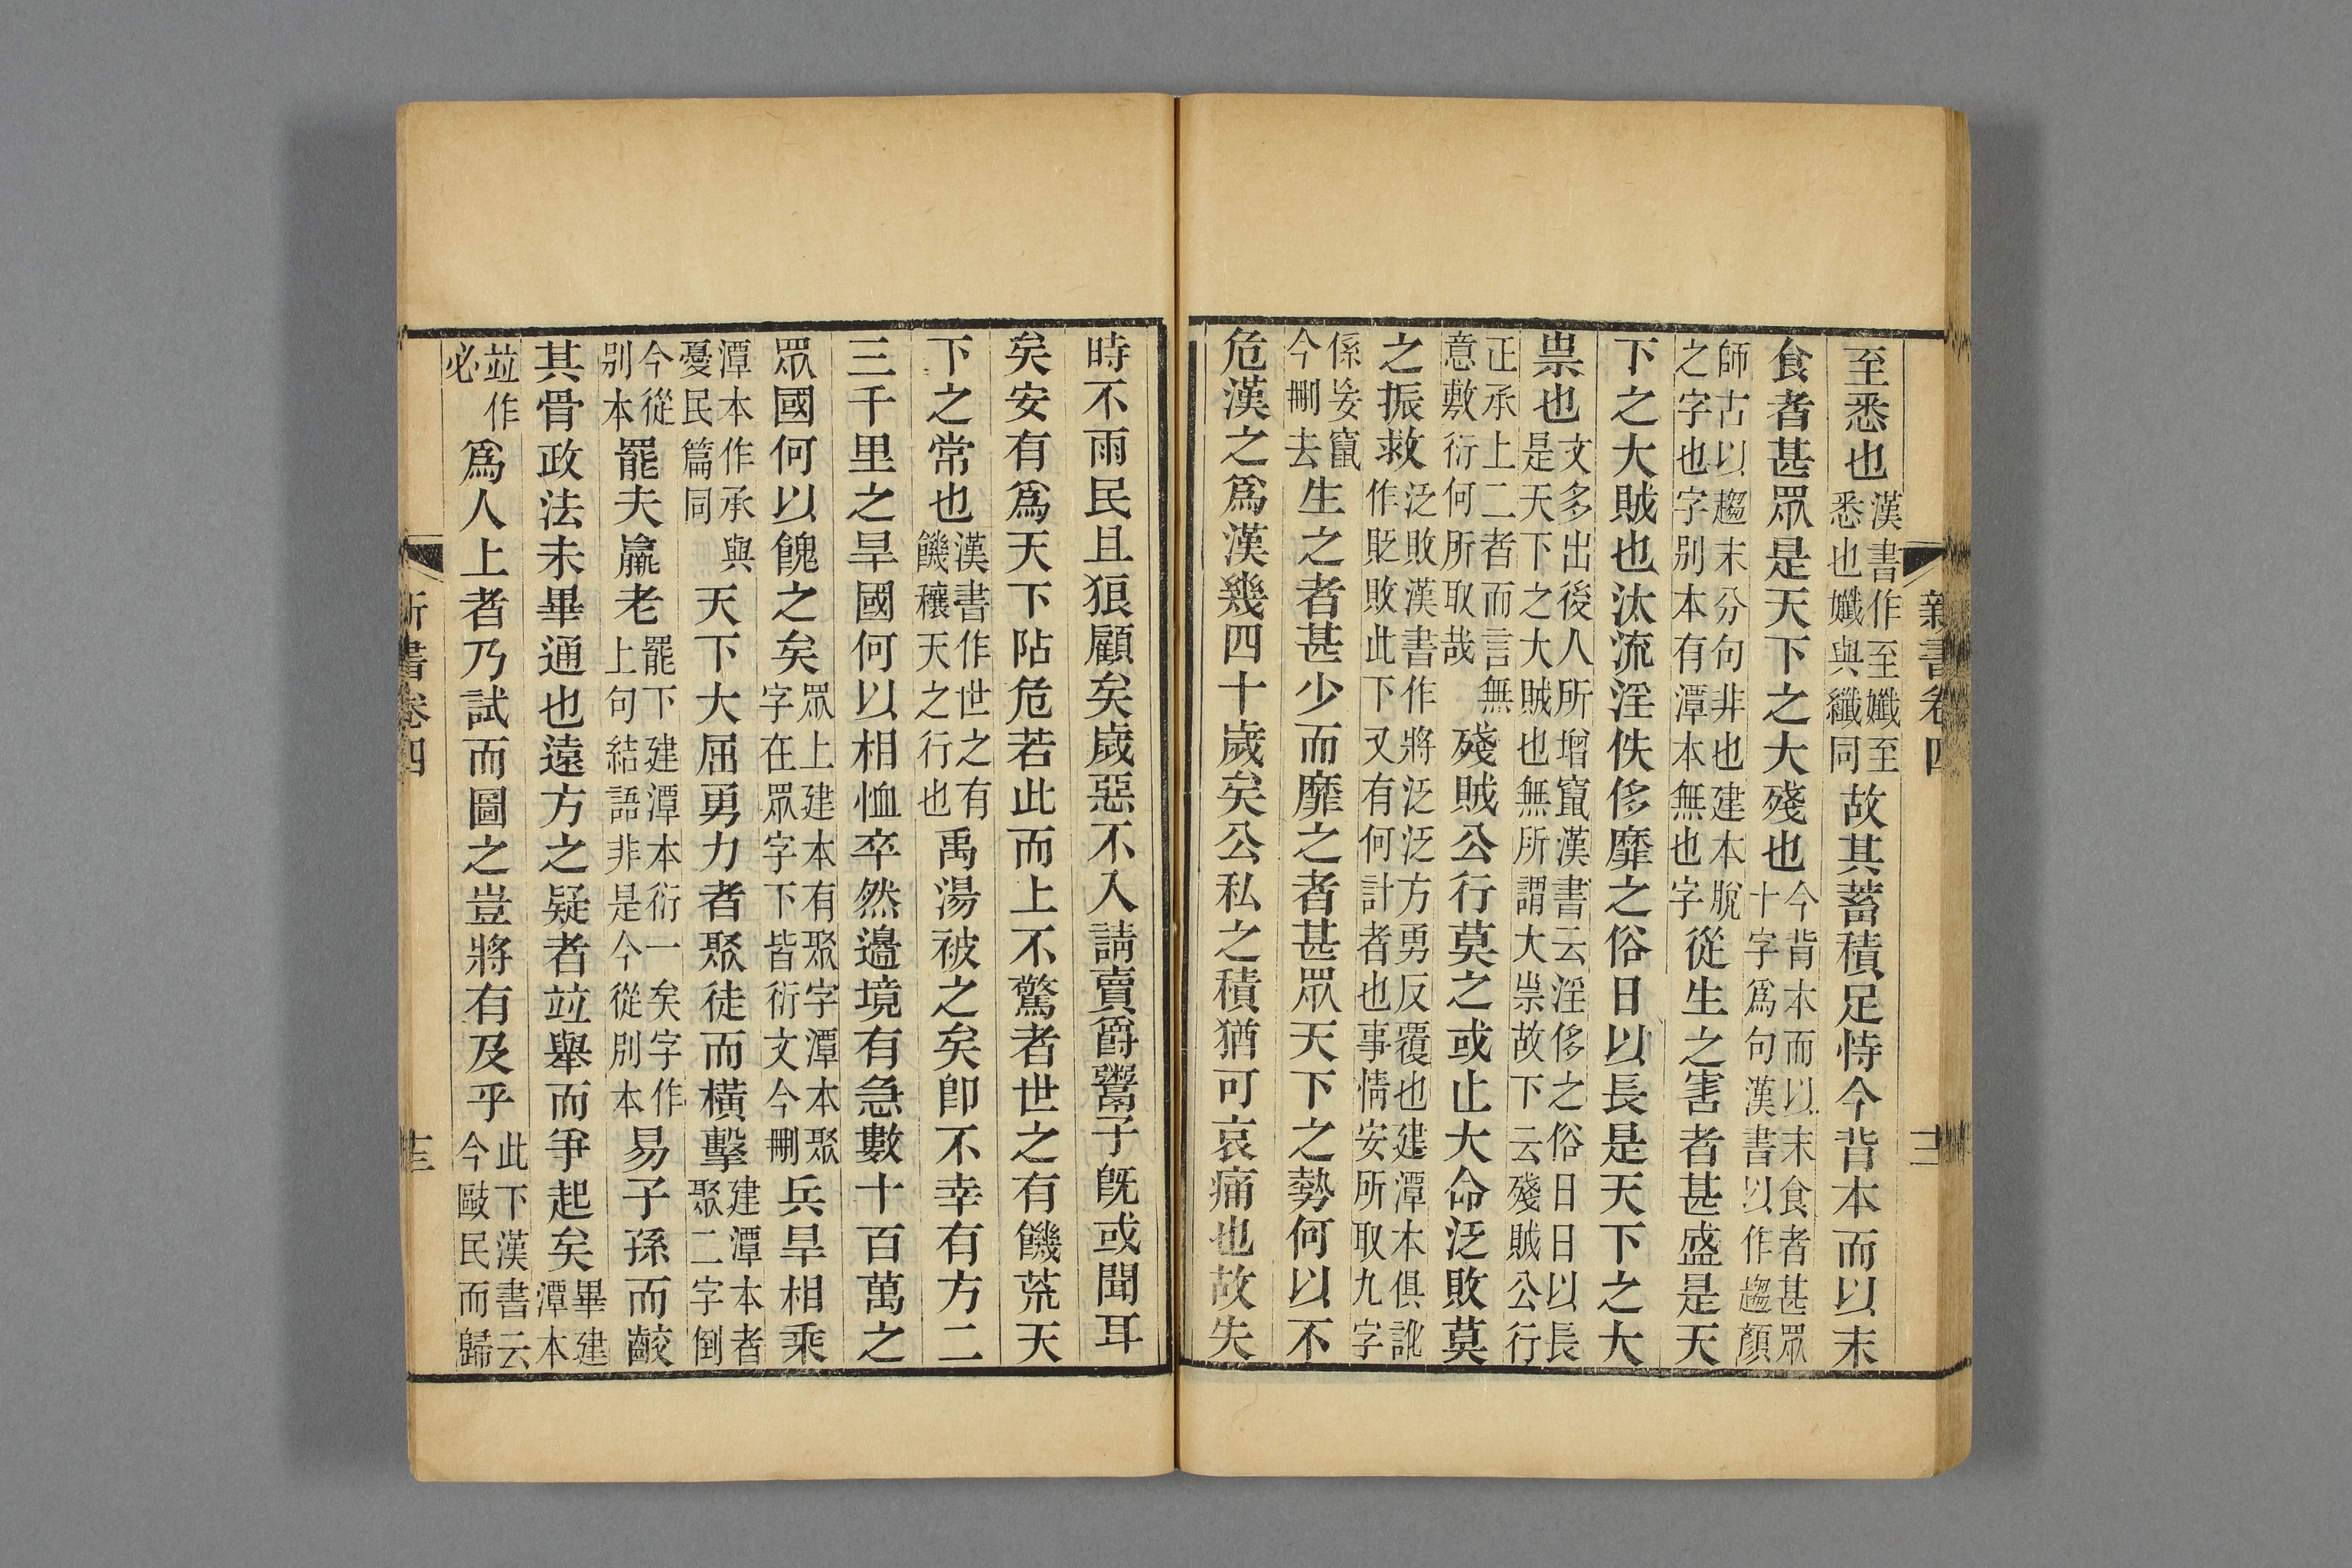 新書卷四 十二
至悉也漢書作至孅至悉也孅與纖同故其蓄積足恃今背本而以末
食者甚眾是天下之大殘也今背本而以末食者甚眾十字爲句漢書以作趨顏
師古以趨末分句非也建本脫之字也字別本有潭本無也字從生之害者甚盛是天
下之大賊也汰流淫佚侈靡之俗日以長是天下之大
祟也文多出後人所增竄漢書云淫侈之俗日日以長是天下之大賊也無所謂大祟故下云殘賊公行
正承上二者而言無意敷衍何所取哉殘賊公行莫之或止大命泛敗莫
之振救泛敗漢書作將泛泛方勇反覆也建潭本俱訛作貶敗此下又有何計者也事情安所取九字
係妄竄今刪去生之者甚少而靡之者甚眾天下之勢何以不
危漢之爲漢幾四十歲矣公私之積猶可哀痛也故失
時不雨民且狼顧矣歲惡不入請賣爵鬻子旣或聞耳
矣安有爲天下阽危若此而上不驚者世之有饑荒天
下之常也漢書作世之有饑穰天之行也禹湯被之矣卽不幸有方二
三千里之旱國何以相恤卒然邊境有急數十百萬之
眾國何以餽之矣眾上建本有聚字潭本聚字在眾字下皆衍文今刪兵旱相乘
潭本作承與憂民篇同天下大屈勇力者聚徒而橫擊建潭本者聚二字倒
今從別本罷夫羸老罷下建潭本衍一矣字作上句結語非是今從別本易子孫而齩
其骨政法未畢通也遠方之疑者竝舉而爭起矣畢建潭本
竝作必爲人上者乃試而圖之豈將有及乎此下漢書云今敺民而歸
新書卷四 十三